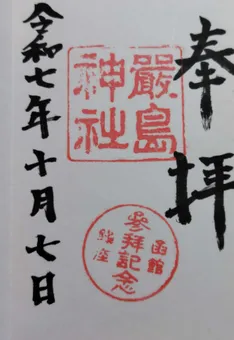 奉拝
嚴島
神社
函館
參拝記念
令和七年十月七日